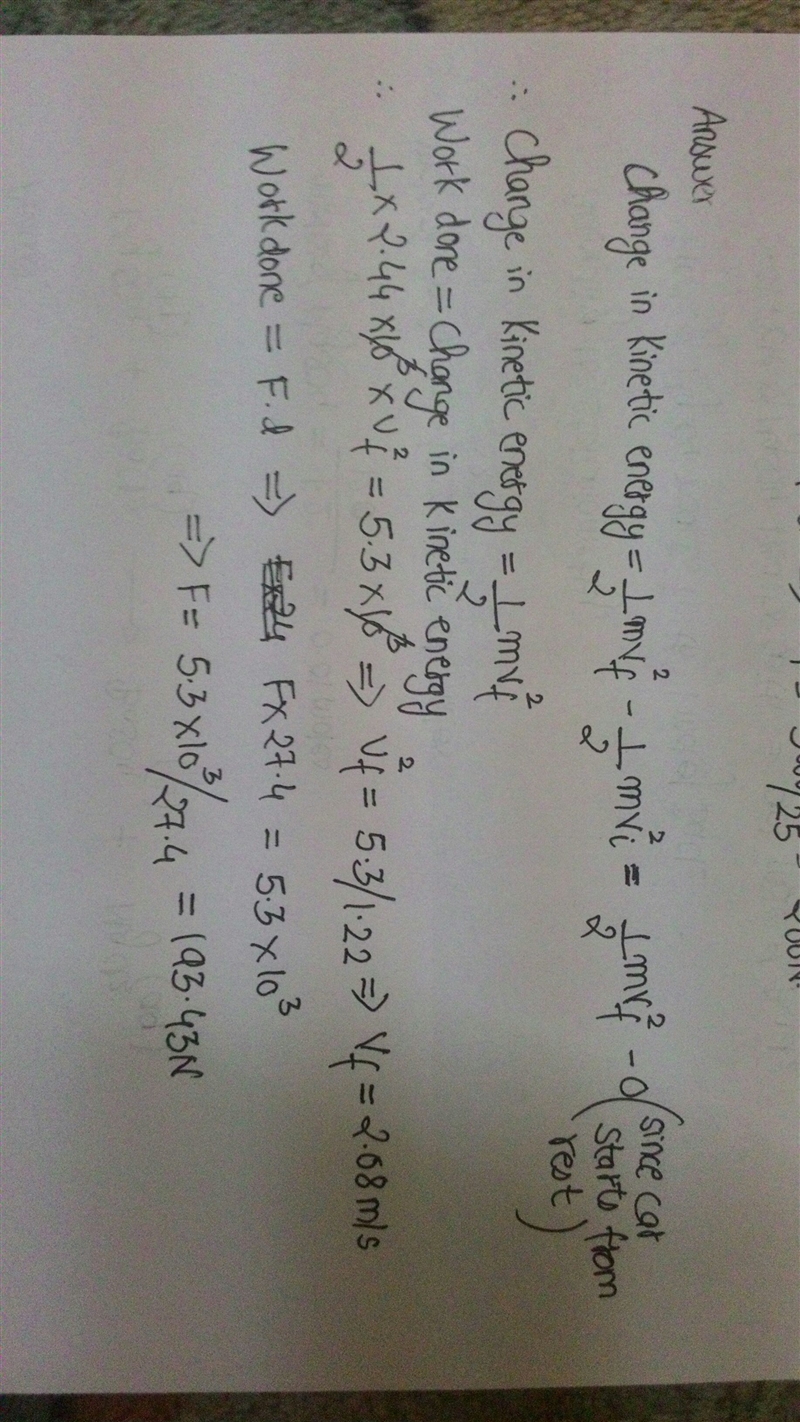 Answer
Change in Kinetic energy = 1/2 mvf² - 1/2 mvi² = 1/2 mvf² - 0 (since car starts from rest)
∴ Change in Kinetic energy = 1/2 mvf²
Work done = Change in Kinetic energy
∴ 1/2 × 2.44 × 10³ × vf² = 5.3 × 10³ ⇒ vf² = 5.3/1.22 ⇒ Vf = 2.08 m/s
Work done = F.d ⇒ F × 27.4 = 5.3 × 10³
⇒ F = 5.3 × 10³/27.4 = 193.43N